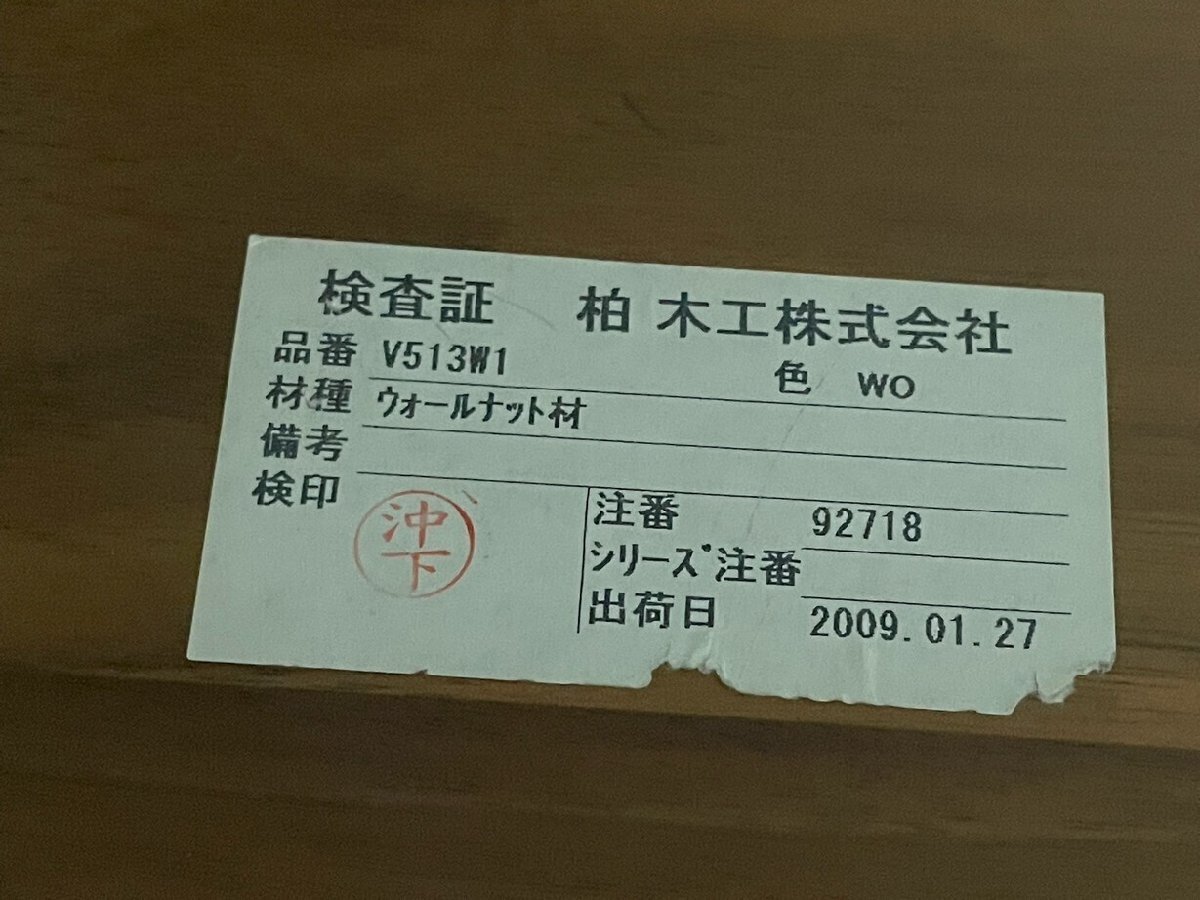 検査証 柏木工株式会社
品番 V513W1 色 WO
材種 ウォールナット材
備考
検印 沖下
注番 92718
シリーズ注番
出荷日 2009.01.27